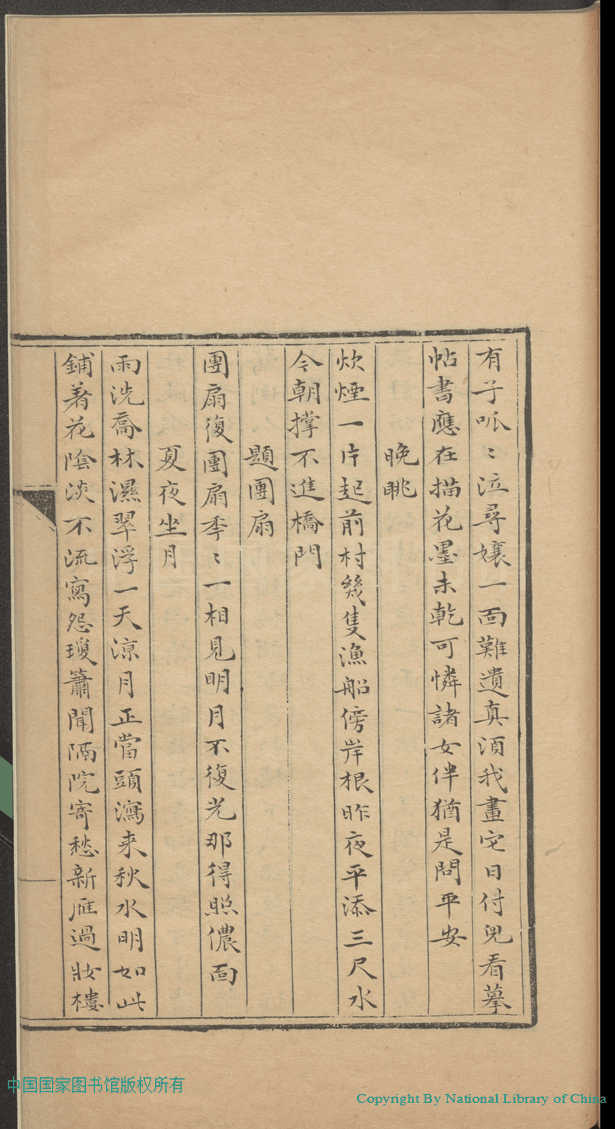 有子呱〻泣尋孃一面難遺真須我畫它日付兒看摹
帖書應在描花墨未乾可憐諸女伴猶是問平安
晚眺
炊煙一片起前村幾隻漁船傍岸根昨夜平添三尺水
今朝撐不進橋門
題團扇
團扇復團扇季〻一相見明月不復光那得照儂面
夏夜坐月
雨洗喬林濕翠浮一天涼月正當頭瀉来秋水明如此
鋪著花陰淡不流寫怨瓊簫聞隔院寄愁新雁過妝樓
中国国家图书馆版权所有
Copyright By National Library of China